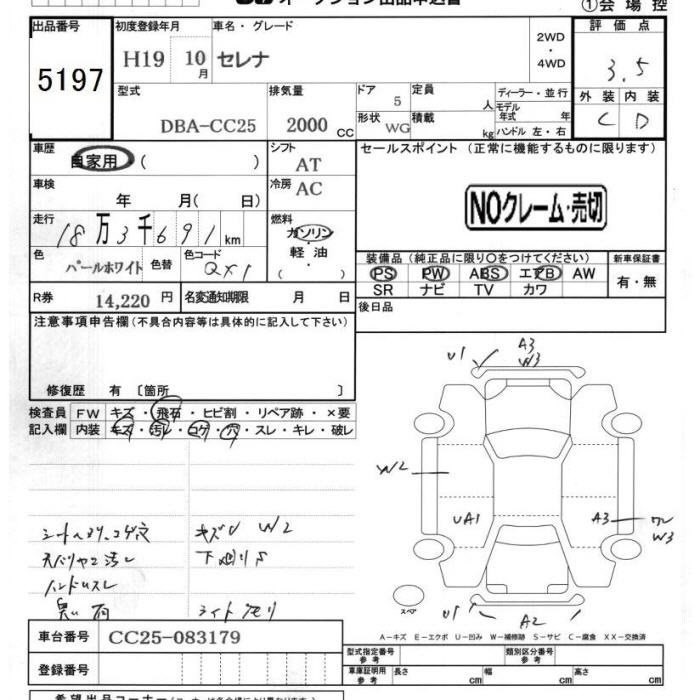 ①会場控
出品番号
5197
初度登録年月
H19 10月
車名・グレード
セレナ
2WD
・
4WD
評価点
3.5
型式
DBA-CC25
排気量
2000 CC
ドア
5
定員
人
形状
WG
積載
kg
ディーラー・並行
モデル
年式 年
ハンドル 左・右
外装
C
内装
D
車歴
自家用 ( )
シフト
AT
車検
年 月( 日)
冷房
AC
走行
18万3千691km
燃料
ガソリン
軽油
( )
色
パールホワイト
色替
色コード
QX1
R券
14,220 円
名変通知期限 月 日
セールスポイント (正常に機能するものに限ります)
NOクレーム・売切
装備品 (純正品に限り〇をつけてください)
PS PW ABS エアB AW
SR ナビ TV カワ
新車保証書
有・無
後日品
注意事項申告欄 (不具合内容等は具体的に記入して下さい)
修復歴 有 〔箇所 〕
検査員
記入欄
FW キズ・飛石・ヒビ割・リペア跡・×要
内装 キズ・汚レ・コゲ・穴・スレ・キレ・破レ
キズU W2
ハンドルスレ
ライトクモリ
U1
A3
W3
W2
UA1
A3
ワレ
W3
スペア
U1
A2
A-キズ E-エクボ U-凹み W-補修跡 S-サビ C-腐食 XX-交換済
車台番号
CC25-083179
登録番号
型式指定番号
参考
類別区分番号
参考
車庫証明用
参考
長さ cm
幅 cm
高さ cm